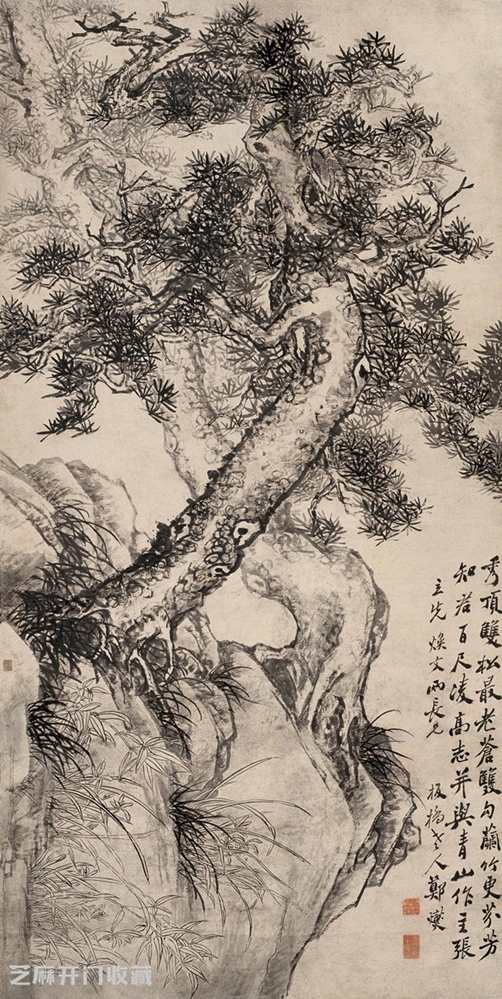 秀頂雙松最老蒼雙勾蘭竹更芬芳
知君百尺凌高志并與青山作主張
立先煥文兩長兄
板橋老人鄭燮
芝麻开门收藏